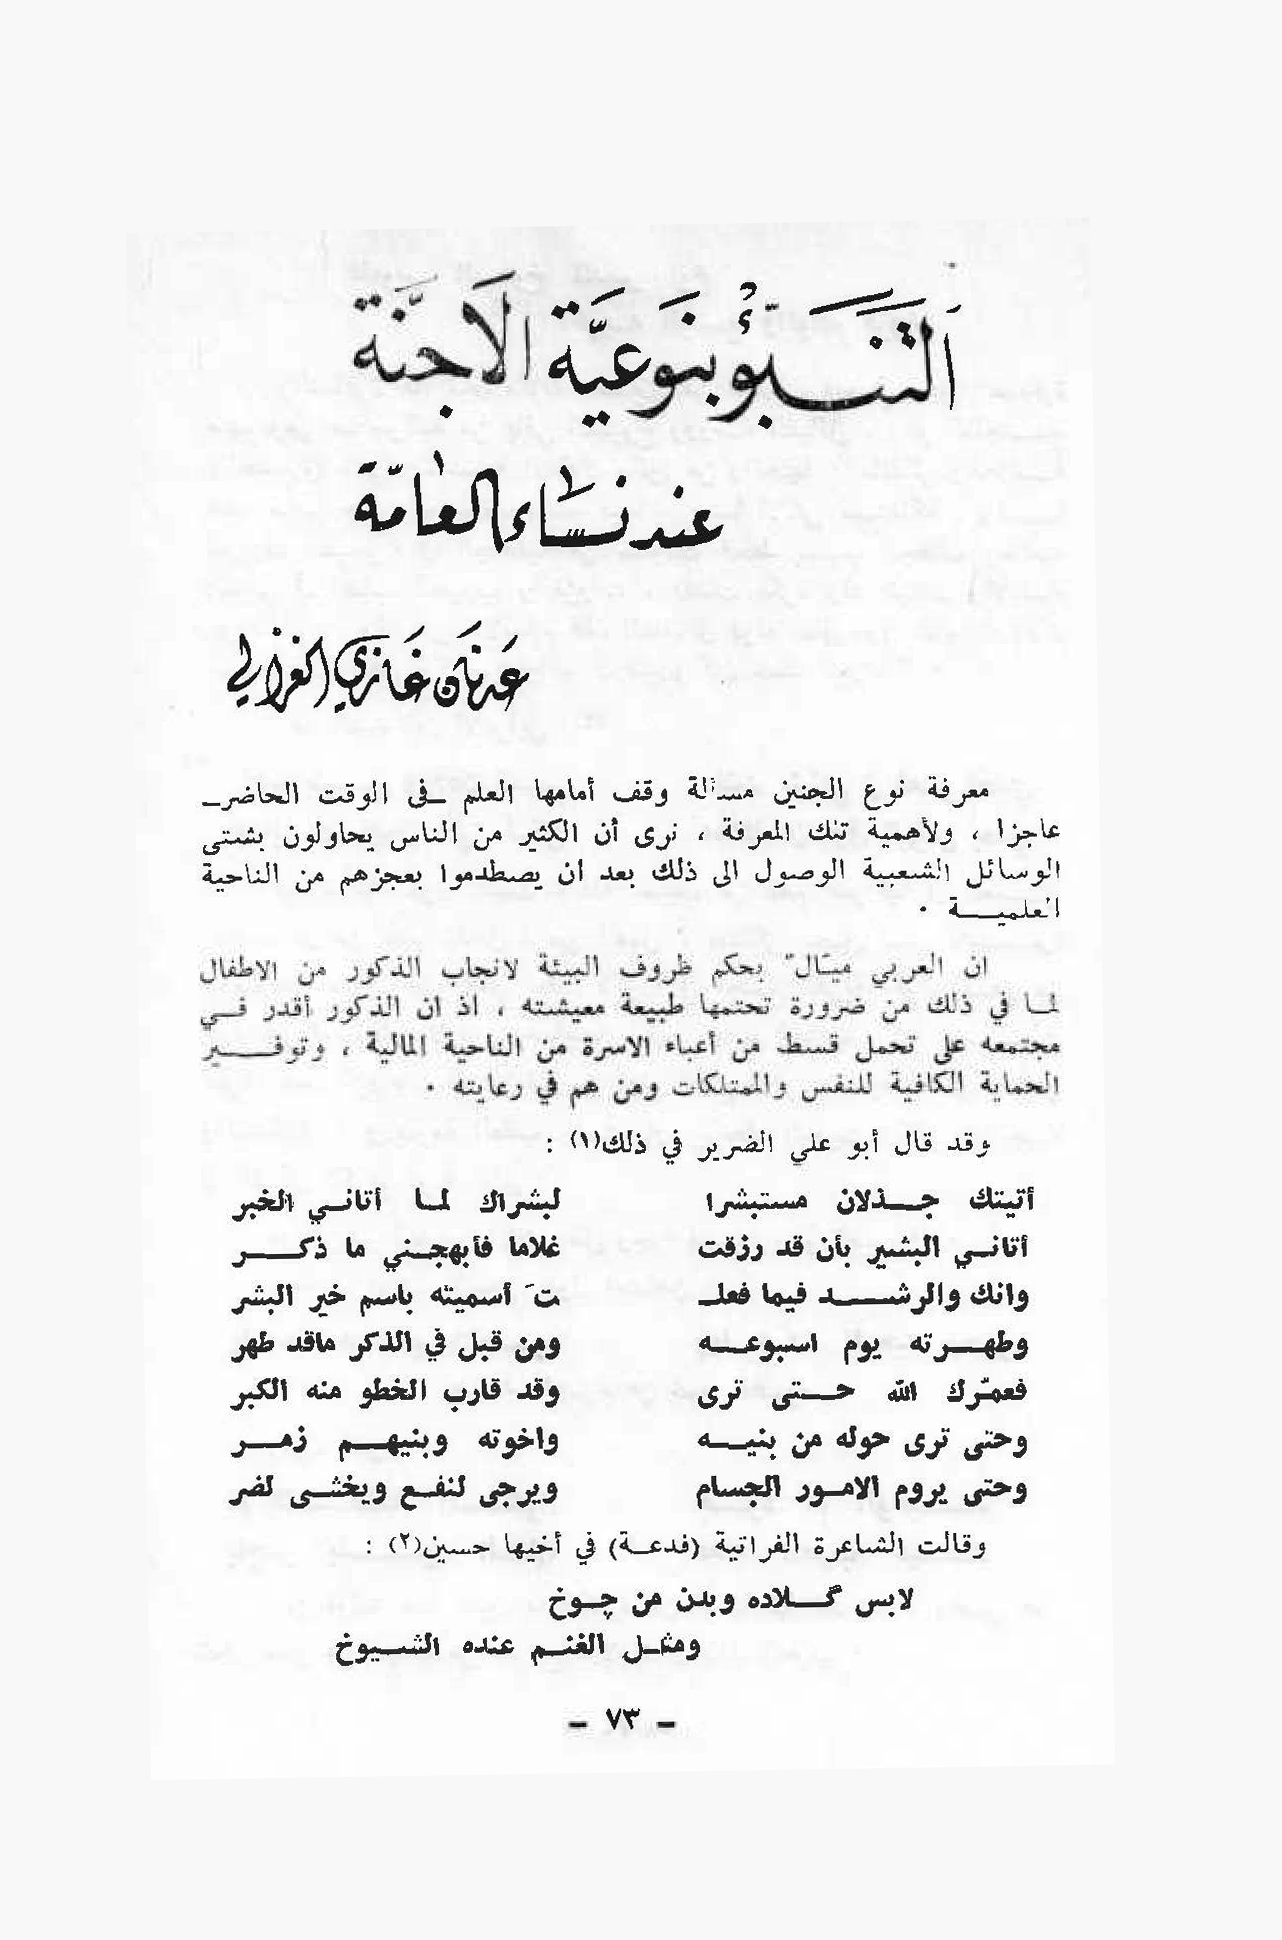 التنبؤ بنوعية الاجنة
عند نساء العامة
عدنان غازي الغزالي
معرفة نوع الجنين مسألة وقف أمامها العلم ـفى الوقت الحاضرـ
عاجزا ، ولأهمية تلك المعرفة ، نرى أن الكثير من الناس يحاولون بشتى
الوسائل الشعبية الوصول الى ذلك بعد ان يصطدموا بعجزهم من الناحية
العلميـــة ٠
ان العربي ميّالٌ بحكم ظروف البيئة لانجاب الذكور من الاطفال
لمـا في ذلك من ضرورة تحتمها طبيعة معيشته ، اذ ان الذكور أقدر فـي
مجتمعه على تحمل قسط من أعباء الاسرة من الناحية المالية ، وتوفـــير
الحماية الكافية للنفس والممتلكات ومن هم في رعايته ٠
وقد قال أبو علي الضرير في ذلك(١) :
أتيتك جـــذلان مستبشرا لبشراك لمـا أتانـي الخبر
أتانـي البشير بأن قد رزقت غلاما فأبهجـني ما ذكـــر
وانك والرشـــد فيما فعلـ ـتَ أسميته باسم خير البشر
وطهـــرته يوم اسبوعـــه ومن قبل في الذكر ماقد طهر
فعمّرك الله حـــتى ترى وقد قارب الخطو منه الكبر
وحتى ترى حوله من بنيـــه واخوته وبنيهـــم زمـــر
وحتى يروم الامـور الجسام ويرجى لنفـع ويخشـى لضر
وقالت الشاعرة الفراتية (فدعـة) في أخيها حسين(٢) :
لابس گـــلاده وبدن من چـوخ
ومثـل الغنـم عنده الشـيوخ
- ٧٣ -